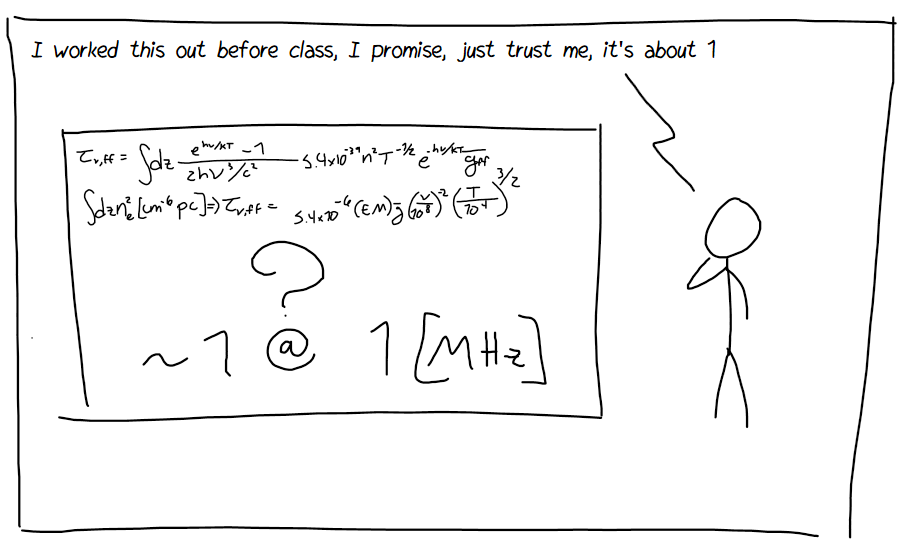 I worked this out before class, I promise, just trust me, it's about 1
τν,ff = ∫dz (e^(hν/kT) - 1)/(2hν³/c²) 5.4x10^-39 n² T^-1/2 e^-hν/kT g̅ff
∫dz nₑ² [cm^-6 pc] => τν,ff = 5.4x10^-6 (EM) g̅ (ν/10^8)^-2 (T/10^4)^3/2
?
~1 @ 1 [MHz]